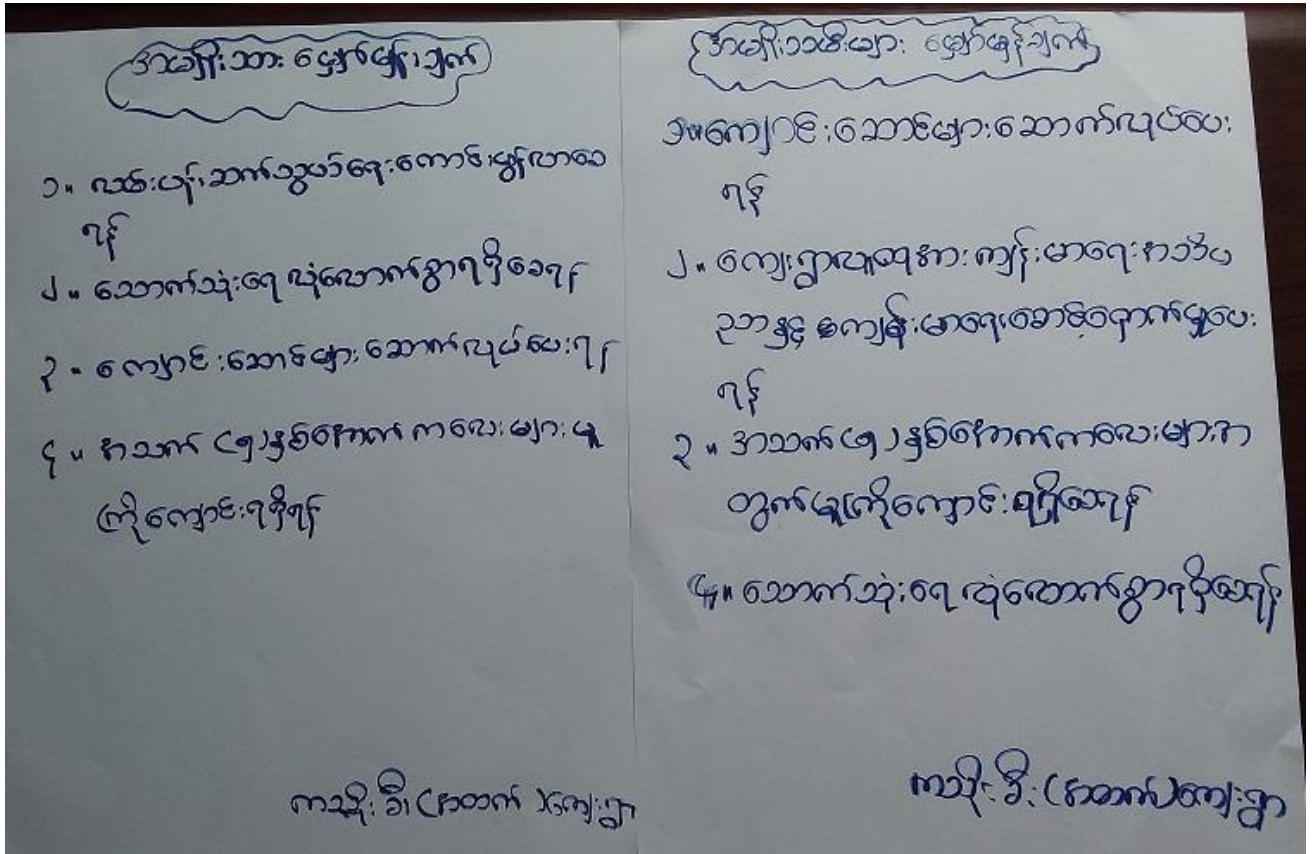 အမျိုးသား မျှော်မှန်းချက်
၁။ လမ်းပန်းဆက်သွယ်ရေးကောင်းမွန်လာစေ
ရန်
၂။ သောက်သုံးရေ လုံလောက်စွာရရှိစေရန်
၃။ ကျောင်းဆောင်များ ဆောက်လုပ်ပေးရန်
၄။ အသက် (၅) နှစ်အောက် ကလေးများ မူ
ကြိုကျောင်းရရှိရန်
ကသိုးခီး (အထက်) ကျေးရွာ
အမျိုးသမီးများ မျှော်မှန်းချက်
၁။ ကျောင်းဆောင်များဆောက်လုပ်ပေး
ရန်
၂။ ကျေးရွာလူထုအား ကျန်းမာရေးအသိပ
ညာနှင့် ကျန်းမာရေးစောင့်ရှောက်မှုပေး
ရန်
၃။ အသက် (၅) နှစ်အောက်ကလေးများအ
တွက်မူကြိုကျောင်းရရှိစေရန်
၄။ သောက်သုံးရေ လုံလောက်စွာရရှိစေရန်
ကသိုးခီး (အထက်) ကျေးရွာ